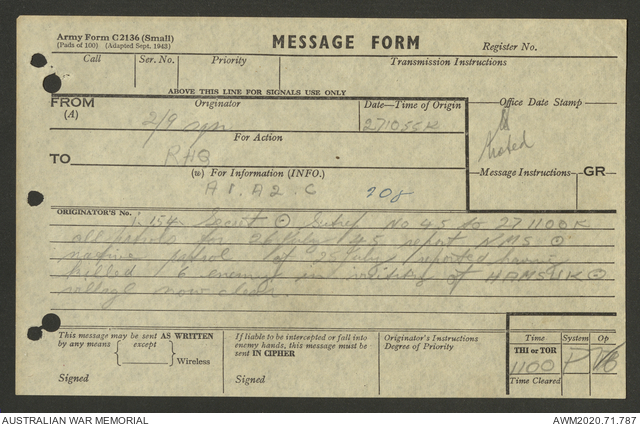 Army Form C2136 (Small)
(Pads of 100) (Adapted Sept. 1943)
MESSAGE FORM
Register No.
Call Ser. No. Priority Transmission Instructions
ABOVE THIS LINE FOR SIGNALS USE ONLY
FROM
(A)
Originator
Date—Time of Origin
Office Date Stamp
2/9
271055K
Noted
For Action
TO
RHQ
(W) For Information (INFO.)
Message Instructions GR
A1. A2. C
208
ORIGINATOR'S No.
154 Secret Sitrep No 45 to 271100K
all patrols for 26 July 45 report NMS
native patrol of 25 July reported having
killed 6 enemy in vicinity of
village now clear.
This message may be sent AS WRITTEN
by any means except
Wireless
Signed
If liable to be intercepted or fall into
enemy hands, this message must be
sent IN CIPHER
Signed
Originator's Instructions
Degree of Priority
Time System Op
THI or TOR
1100 P
Time Cleared
AUSTRALIAN WAR MEMORIAL
AWM2020.71.787